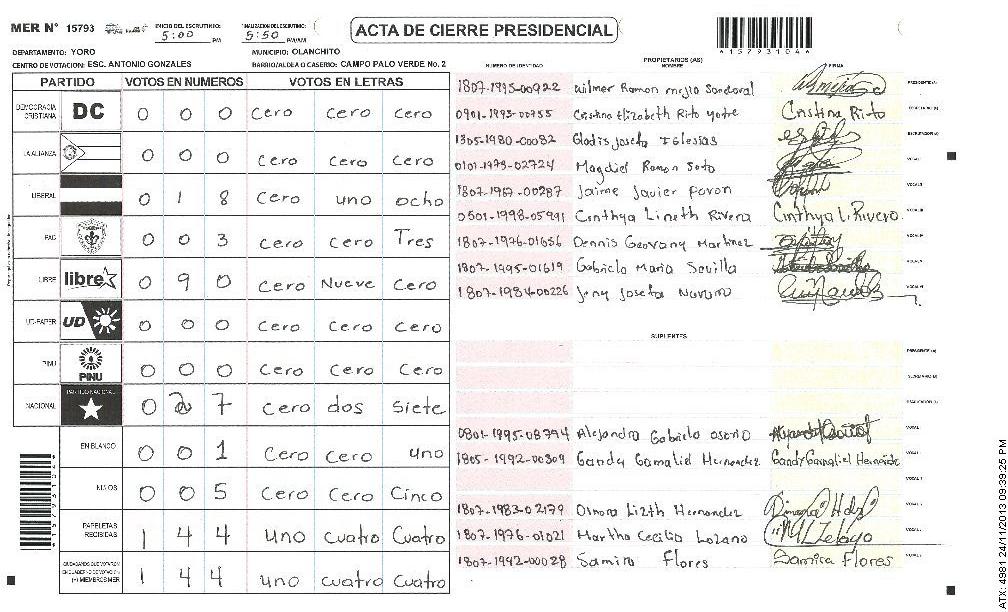 MER N° 15793 INICIO DEL ESCRUTINIO: 5:00 PM FINALIZACION DEL ESCRUTINIO: 5:50 PM/AM
ACTA DE CIERRE PRESIDENCIAL
DEPARTAMENTO: YORO MUNICIPIO: OLANCHITO
CENTRO DE VOTACION: ESC. ANTONIO GONZALES BARRIO/ALDEA O CASERIO: CAMPO PALO VERDE No. 2
PARTIDO VOTOS EN NUMEROS VOTOS EN LETRAS
DEMOCRACIA CRISTIANA DC 0 0 0 Cero Cero Cero
LA ALIANZA 0 0 0 Cero Cero Cero
LIBERAL 0 1 8 Cero uno ocho
PAC 0 0 3 Cero Cero Tres
LIBRE libre 0 9 0 Cero Nueve Cero
UD-FAPER UD 0 0 0 Cero Cero Cero
PINU PINU 0 0 0 Cero Cero Cero
NACIONAL PARTIDO NACIONAL 0 2 7 Cero dos siete
EN BLANCO 0 0 1 Cero Cero uno
NULOS 0 0 5 Cero Cero Cinco
PAPELETAS RECIBIDAS 1 4 4 uno cuatro Cuatro
CIUDADANOS QUE VOTARON EN CUADERNO DE VOTO (1) (+) MIEMBROS MER 1 4 4 uno cuatro Cuatro
PROPIETARIOS (AS)
NUMERO DE IDENTIDAD NOMBRE FIRMA
1807-1995-00922 Wilmer Ramon mejia Sandoval PRESIDENTE(A)
0901-1993-00755 Cristina Elizabeth Rito Cristina Rito SECRETARIO(A)
1805-1980-00082 Gladis Josefa Iglesias ESCRUTADOR(A)
0101-1979-02724 Magdiel Ramon Soto VOCAL I
1807-1967-00287 Jaime Javier pavon VOCAL II
0501-1998-05991 Cinthya Lineth Rivera Cinthya L. Rivera VOCAL III
1807-1976-01656 Dennis Geovany Martinez VOCAL IV
1807-1995-01619 Gabriela Maria Sevilla VOCAL V
1807-1984-00226 Jeny Josefa Navarro VOCAL VI
SUPLENTES
PRESIDENTE (A)
SECRETARIO (A)
ESCRUTADOR (A)
0801-1995-08794 Alejandra Gabriela osorio VOCAL
1805-1992-00309 Gandy Gamaliel Hernandez Gandy Gamaliel Hernandez VOCAL
1807-1983-02179 Dinora Lizth Hernandez VOCAL
1807-1976-01021 Martha Cecilia Lozano VOCAL
1807-1992-00028 Samira Flores Samira Flores VOCAL
ATX: 4981 24/11/2013 09:39:25 PM